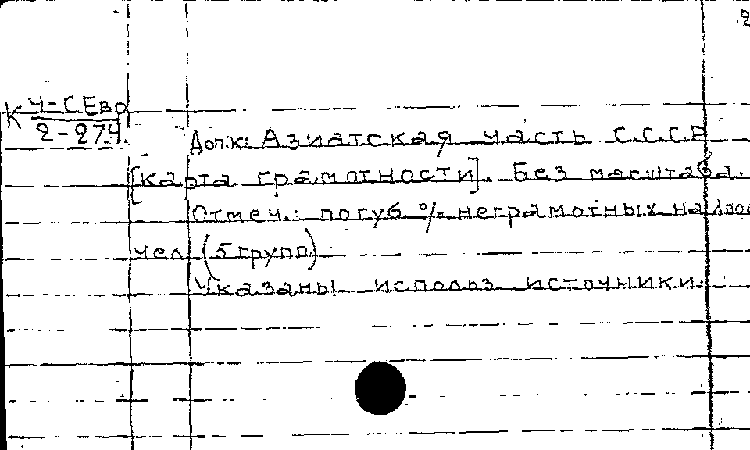 2
К Ч-С Евр
2-274.
Доп.к: Азиатская часть С.С.С.Р
[Карта грамотности]. Без масштаба.
Отмеч.: погуб % неграмотных на 1000
чел (5 групп)
Указаны использ источники.